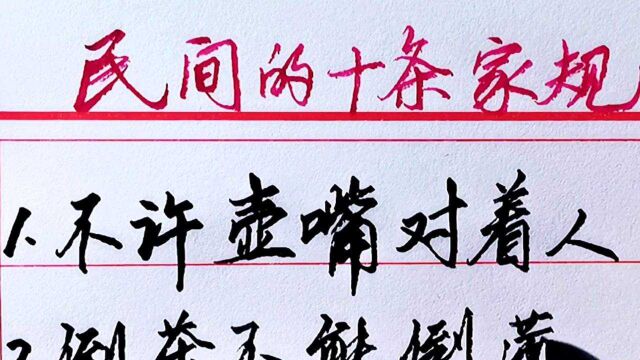 民间的十条家规
1.不许壶嘴对着人
2.倒茶不能倒满